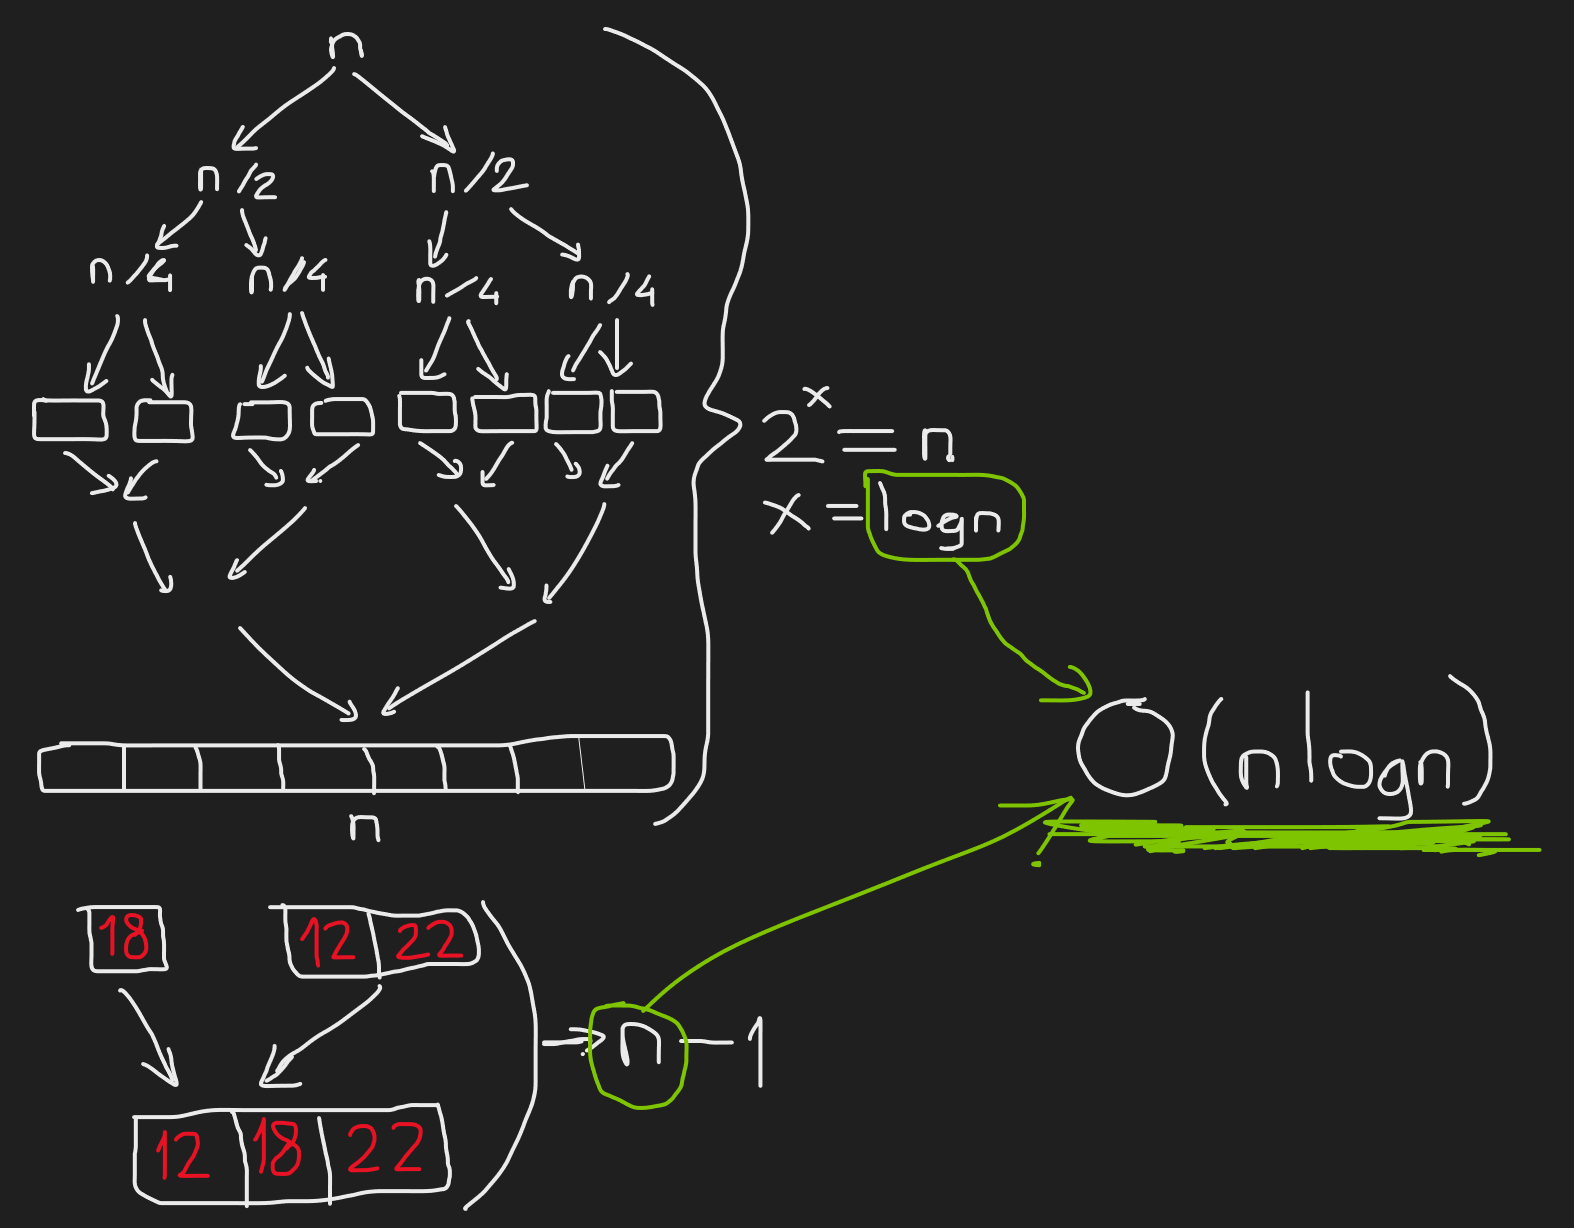 n
n/2 n/2
n/4 n/4 n/4 n/4
2^x = n
x = logn
O(nlogn)
n
18 12 22
n-1
12 18 22